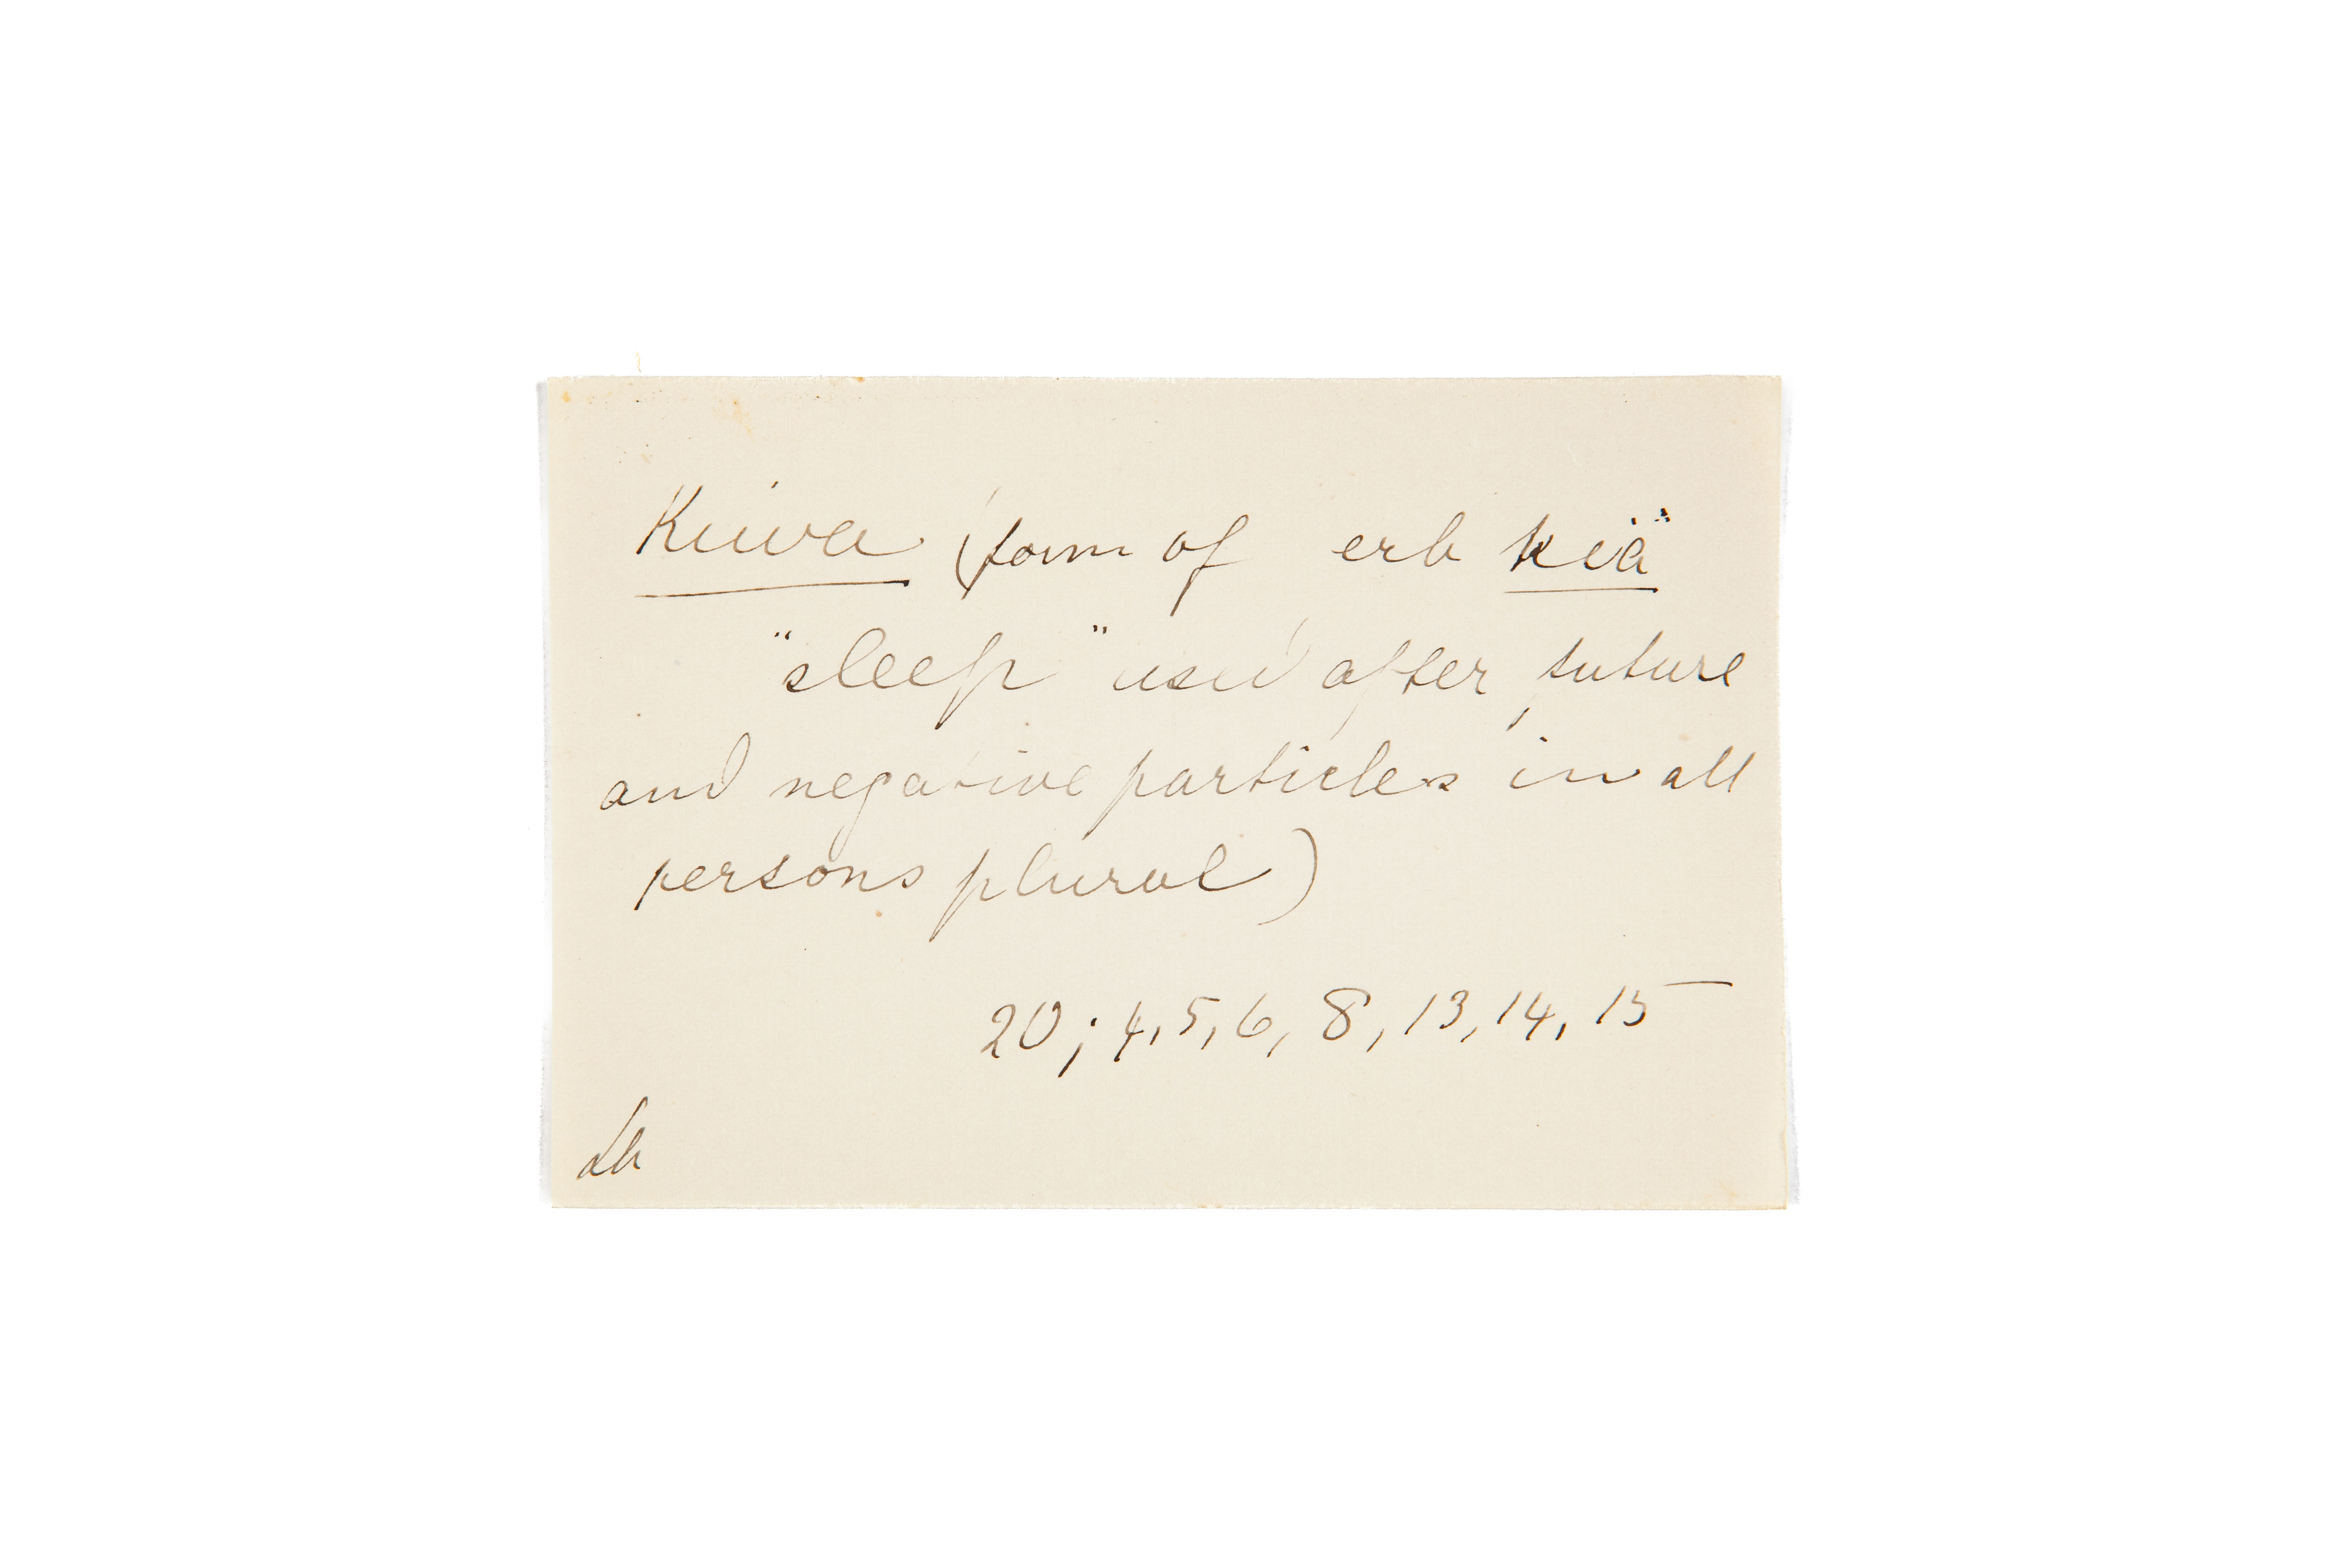 Kiwa (form of erb kiä
"sleep" used after future
and negative particles in all
persons plural)
20; 4, 5, 6, 8, 13, 14, 15